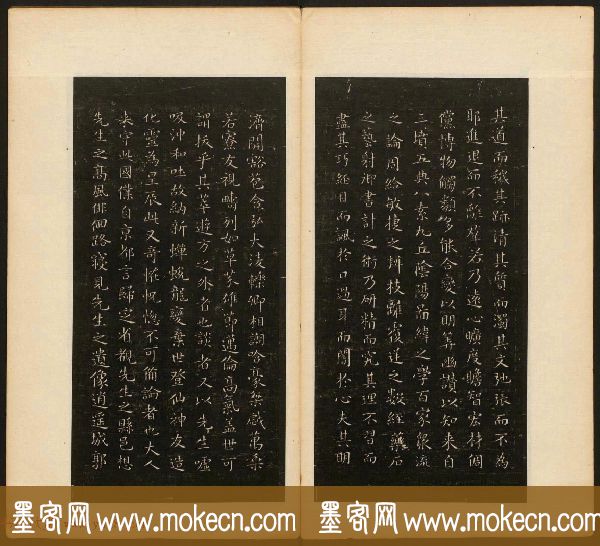 其道而穢其跡清其質而濁其文弛張而不為
耶進退而不離群若乃遠心曠度贍智宏材倜
儻博物觸類多能合變以明筭幽讚以知来自
三墳五典八素九丘陰陽啚緯之學百家衆流
之論周給敏捷之辨枝離覆逆之數經藥石
之藝射御書計之術乃研精而究其理不習而
盡其巧經目而諷於口過耳而闇於心夫其明
濟開豁苞含弘大淩轢卿相謿哈豪桀戲萬乗
若寮友視疇列如草芥雄節邁倫高氣盖世可
謂拔乎其萃遊方之外者也談者又以先生噓
吸沖和吐故納新蟬蛻龍變棄世登仙神友造
化靈為星辰此又奇怪怳惚不可備論者也大人
来守此國僕自京都言歸定省覩先生之縣邑想
先生之高風俳佪路寝見先生之遺像逍遥城郭
墨客网 www.mokecn.com 墨客网 www.mokecn.com